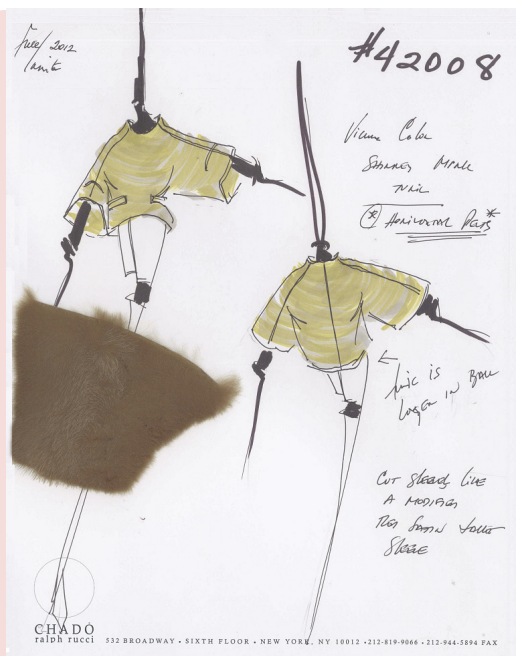 Fall/2012
#42008
Vicuna Color
Sheared Mink
Tunic
(*) Horizontal Pelts*
← Tunic is
longer in Back
Cut Sleeves Like
A Modified
Yoke
Sleeve
CHADO
ralph rucci 532 BROADWAY • SIXTH FLOOR • NEW YORK, NY 10012 •212-819-9066 • 212-944-5894 FAX